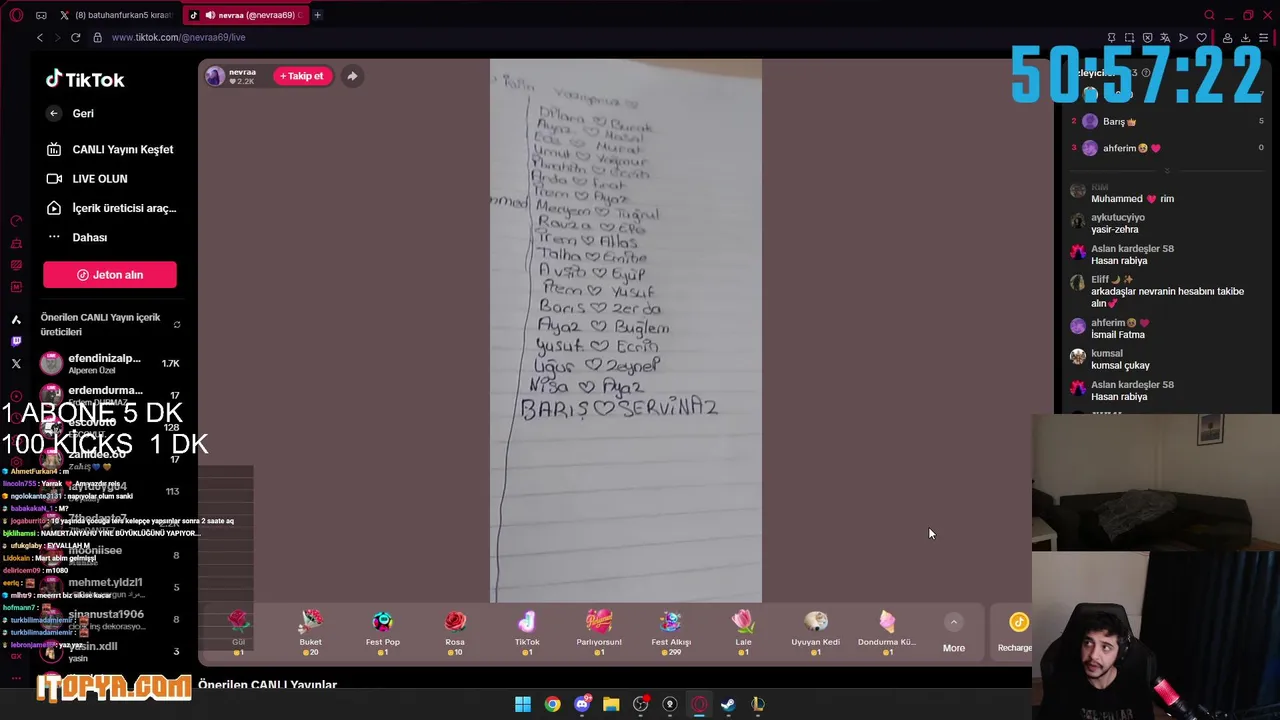 (8) batuhanfurkan5 kıraat
nevraa (@nevraa69)
www.tiktok.com/@nevraa69/live
TikTok
Geri
CANLI Yayını Keşfet
LIVE OLUN
İçerik üreticisi araç...
Dahası
Jeton alın
Önerilen CANLI Yayın içerik
üreticileri
efendinizalp...
Alperen Üzel
1.7K
erdemdurma...
Erdem DURMAZ
17
1 ABONE 5 DK
escovoto
128
100 KICKS 1 DK
zahidee.60
17
AhmetFurkan4 : m
lincoln755 : Yarrak ❤ Am yazdır reis
ngolokante3131 : napıyolar olum sanki
113
babakakaN_1 : M?
jogaburrito : 10 yaşında çocuğa ters kelepçe yapsınlar sonra 2 saate aq
bjklihamsi : NAMERTANYAHU YİNE BÜYÜKLÜĞÜNÜ YAPIYOR...
ufukglaby : EYVALLAH M
mooniisee
8
Lidokain : Mart abim gelmişşl
deliricem09 : m1080
eeriq :
mehmet.yldzl1
5
mlhtr9 : meevrrt biz sikise kacar
hofmann7 :
sinanusta1906
8
turkbilimadamiemir :
turkbilimadamiemir :
lebronjames : yaz yaz
yasin.xdll
yasin
3
İTOPYA.COM
nevraa
2.2K
+ Takip et
yazıyoruz ♡
Dilara ♡ Burak
Ayaz ♡ Masal
Murat
Umut ♡ Yağmur
İbrahim ♡ Ecrin
Arda ♡ Fırat
İrem ♡ Ayaz
Meryem ♡ Tuğrul
Ravza ♡ Efe
İrem ♡ Atlas
Talha ♡ Emine
Eyüp
İrem ♡ Yusuf
Barış ♡ Zerda
Ayaz ♡ Buğlem
Yusuf ♡ Ecrin
Uğur ♡ Zeynep
Nisa ♡ Ayaz
BARIŞ ♡ SERVİNAZ
Gül
1
Buket
20
Fest Pop
1
Rosa
10
TikTok
1
Parlıyorsun!
1
Fest Alkışı
299
Lale
1
Uyuyan Kedi
1
Dondurma Kü...
1
More
Recharge
Önerilen CANLI Yayınlar
50:57:22
2 Barış 5
3 ahferim 0
Muhammed ❤ rim
aykutucyiyo
yasir-zehra
Aslan kardeşler 58
Hasan rabiya
Eliff
arkadaşlar nevranin hesabını takibe
alın
ahferim
İsmail Fatma
kumsal
kumsal çukay
Aslan kardeşler 58
Hasan rabiya